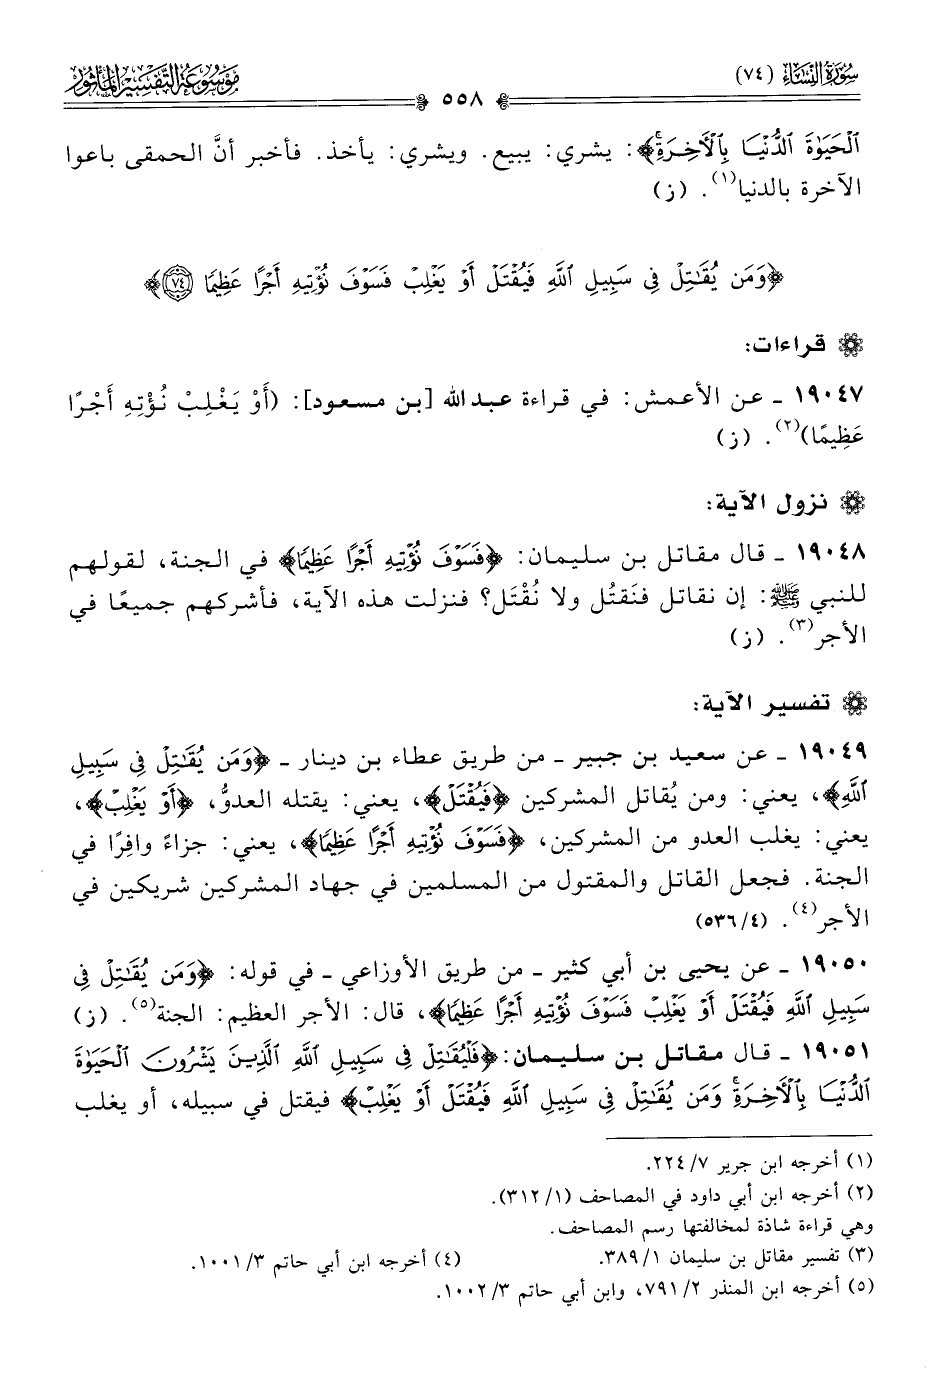 سُورَةُ النِّسَاءِ (٧٤)
٥٥٨
مَوْسُوعَةُ التَّفْسِيرِ المَأْثُور
ٱلْحَيَوٰةَ ٱلدُّنْيَا بِٱلْأٓخِرَةِۚ﴾: يشري: يبيع. ويشري: يأخذ. فأخبر أنَّ الحمقى باعوا
الآخرة بالدنيا(١). (ز)
﴿وَمَن يُقَٰتِلْ فِى سَبِيلِ ٱللَّهِ فَيُقْتَلْ أَوْ يَغْلِبْ فَسَوْفَ نُؤْتِيهِ أَجْرًا عَظِيمًا ٧٤﴾
قراءات:
١٩٠٤٧ ـ عن الأعمش: في قراءة عبد الله [بن مسعود]: (أَوْ يَغْلِبْ نُؤْتِهِ أَجْرًا
عَظِيمًا)(٢). (ز)
نزول الآية:
١٩٠٤٨ ـ قال مقاتل بن سليمان: ﴿فَسَوْفَ نُؤْتِيهِ أَجْرًا عَظِيمًا﴾ في الجنة، لقولهم
للنبي ﷺ: إن نقاتل فنَقتُل ولا نُقْتَل؟ فنزلت هذه الآية، فأشركهم جميعًا في
الأجر(٣). (ز)
تفسير الآية:
١٩٠٤٩ ـ عن سعيد بن جبير ـ من طريق عطاء بن دينار ـ ﴿وَمَن يُقَٰتِلْ فِى سَبِيلِ
ٱللَّهِ﴾، يعني: ومن يُقاتل المشركين ﴿فَيُقْتَلْ﴾، يعني: يقتله العدوُّ، ﴿أَوْ يَغْلِبْ﴾،
يعني: يغلب العدو من المشركين، ﴿فَسَوْفَ نُؤْتِيهِ أَجْرًا عَظِيمًا﴾، يعني: جزاءً وافِرًا في
الجنة. فجعل القاتل والمقتول من المسلمين في جهاد المشركين شريكين في
الأجر(٤). (٥٣٦/٤)
١٩٠٥٠ ـ عن يحيى بن أبي كثير ـ من طريق الأوزاعي ـ في قوله: ﴿وَمَن يُقَٰتِلْ فِى
سَبِيلِ ٱللَّهِ فَيُقْتَلْ أَوْ يَغْلِبْ فَسَوْفَ نُؤْتِيهِ أَجْرًا عَظِيمًا﴾، قال: الأجر العظيم: الجنة(٥). (ز)
١٩٠٥١ ـ قال مقاتل بن سليمان: ﴿فَلْيُقَٰتِلْ فِى سَبِيلِ ٱللَّهِ ٱلَّذِينَ يَشْرُونَ ٱلْحَيَوٰةَ
ٱلدُّنْيَا بِٱلْأٓخِرَةِۚ وَمَن يُقَٰتِلْ فِى سَبِيلِ ٱللَّهِ فَيُقْتَلْ أَوْ يَغْلِبْ﴾ فيقتل في سبيله، أو يغلب
(١) أخرجه ابن جرير ٧/ ٢٢٤.
(٢) أخرجه ابن أبي داود في المصاحف (٣١٢/١).
وهي قراءة شاذة لمخالفتها رسم المصاحف.
(٣) تفسير مقاتل بن سليمان ١/ ٣٨٩.
(٤) أخرجه ابن أبي حاتم ٣/ ١٠٠١.
(٥) أخرجه ابن المنذر ٢/ ٧٩١، وابن أبي حاتم ٣/ ١٠٠٢.